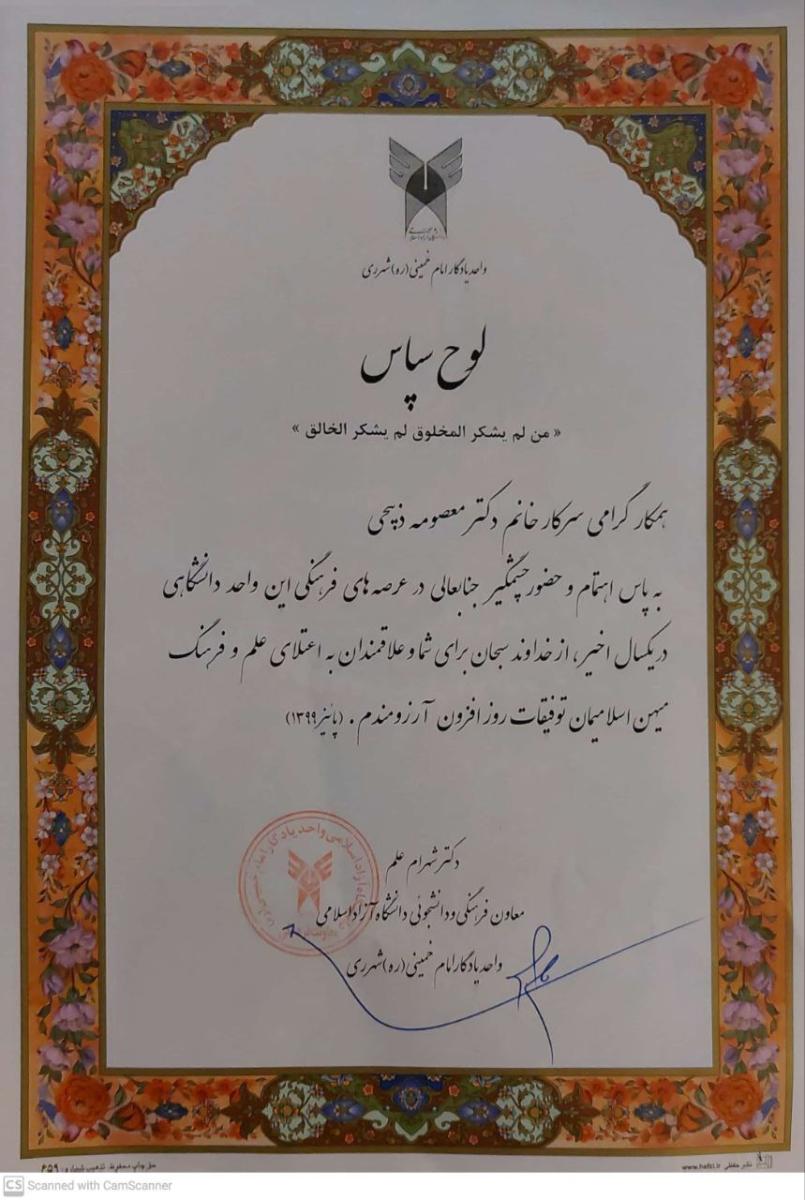 واحد یادگار امام خمینی (ره) شهرری
لوح سپاس
« من لم يشكر المخلوق لم يشكر الخالق »
همکار گرامی سرکار خانم دکتر معصومه ذبیحی
به پاس اهتمام و حضور چشمگیر جنابعالی در عرصه های فرهنگی این واحد دانشگاهی
در یکسال اخیر، از خداوند سبحان برای شما و علاقمندان به اعتلای علم و فرهنگ
میهن اسلامیمان توفیقات روز افزون آرزومندم. (پائیز ۱۳۹۹)
دکتر شهرام علم
معاون فرهنگی و دانشجوئی دانشگاه آزاد اسلامی
واحد یادگار امام خمینی (ره) شهرری
حق چاپ محفوظ. تذهیب شماره: ۶۵۹
نشر حفظی www.hafzi.ir
CS Scanned with CamScanner